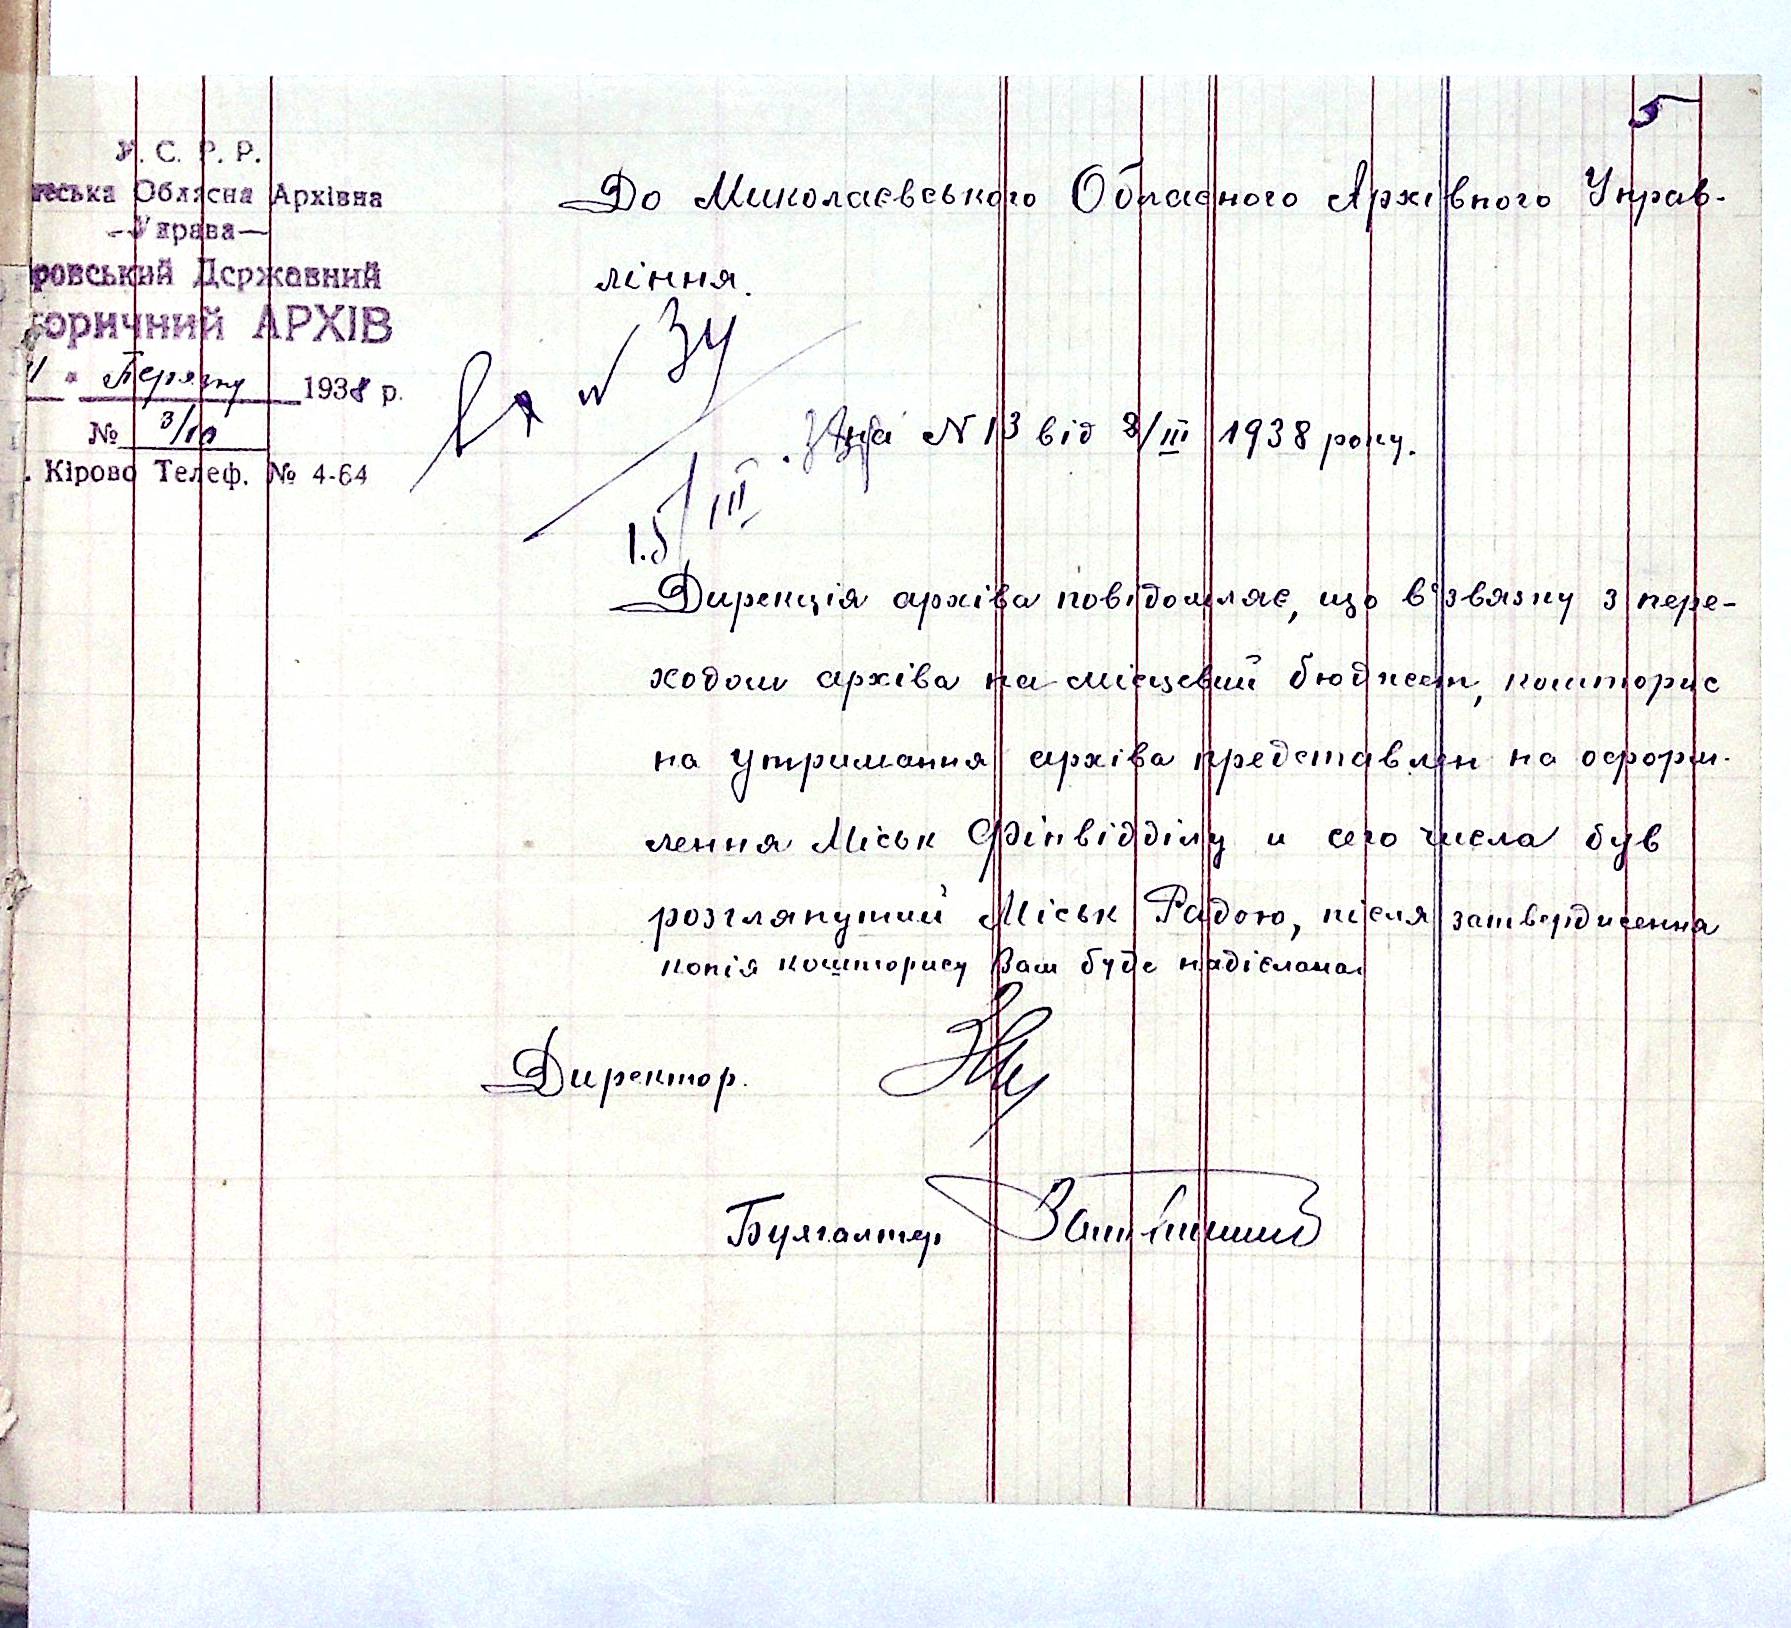 5
У. С. Р. Р.
еська Обласна Архівна
—Управа—
ровський Державний
торичний АРХІВ
1938 р.
№ 3/10
. Кірово Телеф. № 4-64
До Миколаєвського Обласного Архівного Управ-
ління.
Вх № 34
15/III
На № 13 від 8/III 1938 року.
Дирекція архіва повідомляє, що в'звязку з пере-
ходом архіва на місцевий бюджет, кошторис
на утримання архіва представлен на оформ-
лення Міськ Фінвідділу и сего числа був
розглянутий Міськ Радою, після затвердження
копія кошторису Вам буде надіслана.
Директор.
Бухгалтер.